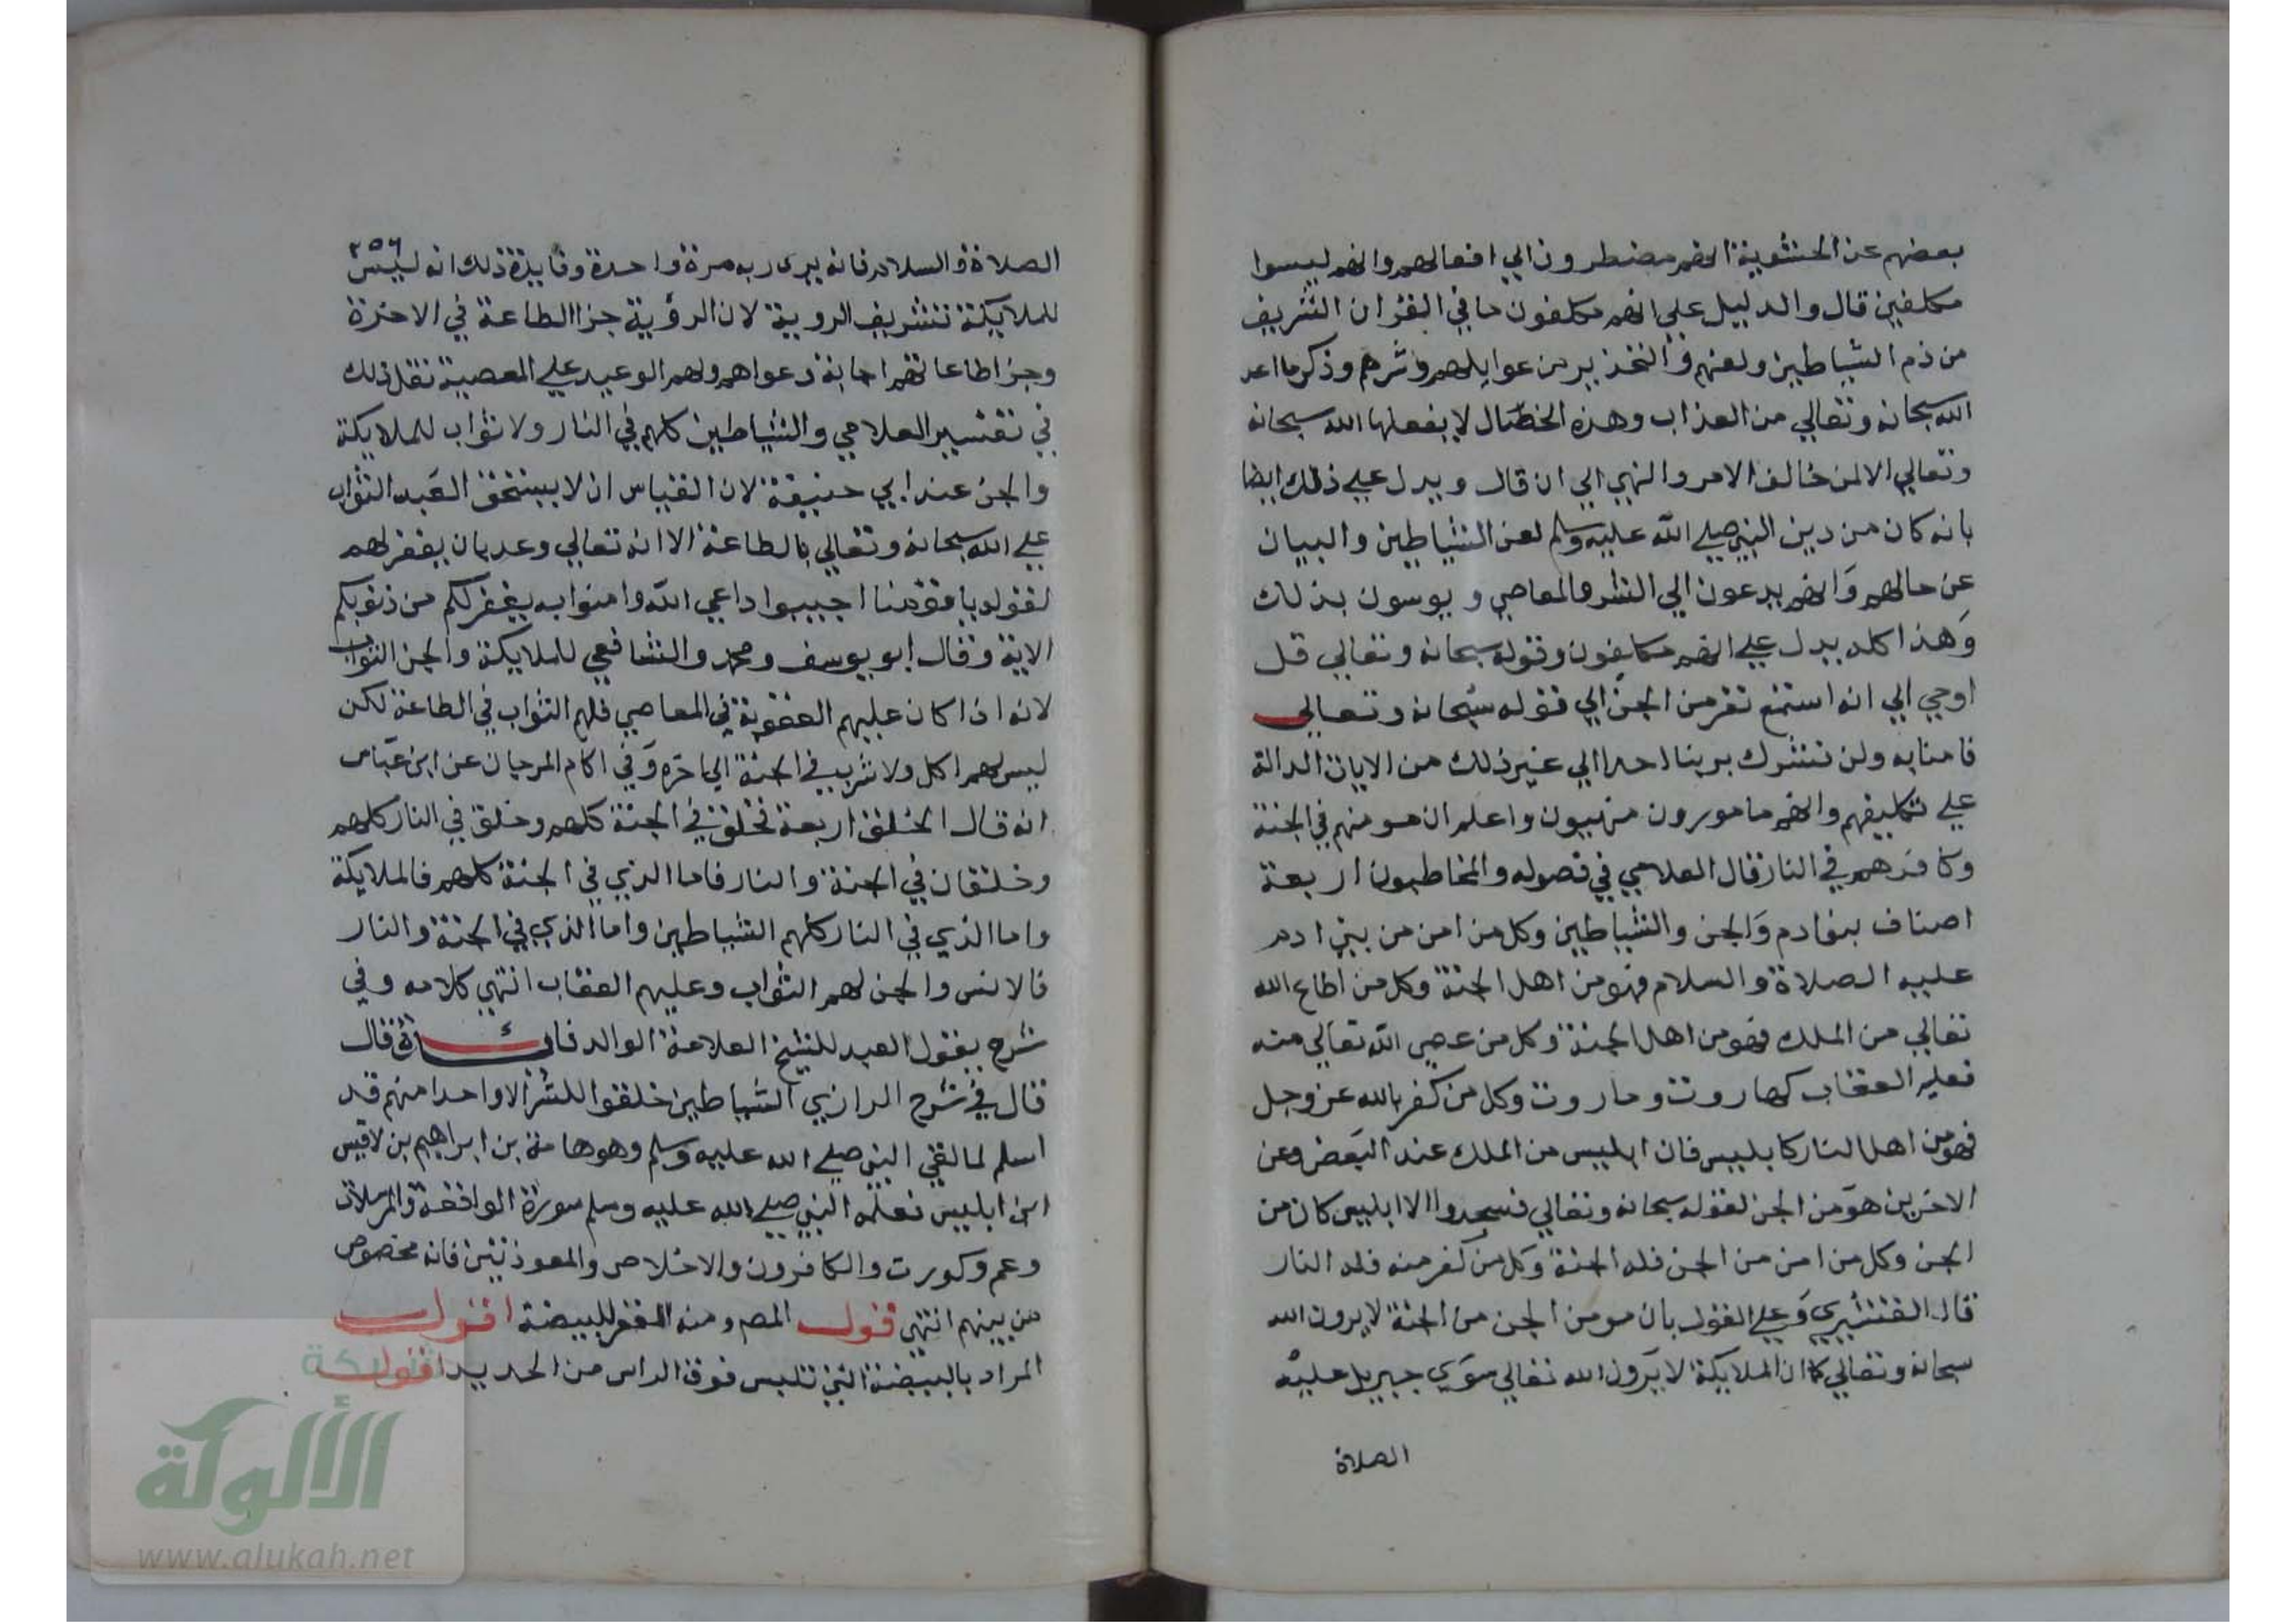 بعضهم عن الحشوية انهم مضطرون الي افعالهم وانهم ليسوا
مكلفين قال والدليل علي انهم مكلفون ما في القران الشريف
من ذم الشياطين ولعنهم والتحذير من غوايلهم وشرهم وذكر ما اعد
الله سبحانه وتعالي من العذاب وهذه الخصال لا يفعلها الله سبحانه
وتعالي الا لمن خالف الامر والنهي الي ان قال ويدل علي ذلك ايضا
بانه كان من دين النبي صلي الله عليه وسلم لعن الشياطين والبيان
عن حالهم وانهم يدعون الي الشر والمعاصي و يوسون بذلك
وهذا كله يدل علي انهم مكلفون وقوله سبحانه وتعالي قل
اوحي الي انه استمع نفر من الجن الي قوله سبحانه وتعالي
فامنا به ولن نشرك بربنا احدا الي غير ذلك من الايات الدالة
علي تكليفهم وانهم مامورون منهيون واعلم ان مومنهم في الجنة
وكافرهم في النار قال العلامي في فصوله والمخاطبون اربعة
اصناف بنوادم والجن والشياطين وكل من امن من بني ادم
عليه الصلاة والسلام فهو من اهل الجنة وكل من اطاع الله
تعالي من الملك فهو من اهل الجنة وكل من عصي الله تعالي منه
فعليه العقاب كهاروت وماروت وكل من كفر بالله عز وجل
فهو من اهل النار كابليس فان ابليس من الملك عند البعض وعن
الاخرين هو من الجن لقوله سبحانه وتعالي فسجدوا الا ابليس كان من
الجن وكل من امن من الجن فله الجنة وكل من كفر منه فله النار
قال القشيري وعلي القول بان مومن الجن من الجنة لا يرون الله
سبحانه وتعالي كما ان الملايكة لا يرون الله تعالي سوي جبريل عليه
الصلاة
٢٥٦
الصلاة والسلام فانه يري ربه مرة واحدة وفايدة ذلك انه ليس
للملايكة تشريف الروية لان الرؤية جزا الطاعة في الاخرة
وجزا طاعاتهم اجابة دعواهم ولهم الوعيد علي المعصية نقل ذلك
في تفسير العلامي والشياطين كلهم في النار ولا ثواب للملايكة
والجن عند ابي حنيفة لان القياس ان لا يستحق العبد الثواب
علي الله سبحانه وتعالي بالطاعة الا انه تعالي وعد بان يغفر لهم
لقوله يا قومنا اجيبوا داعي الله وامنوا به يغفر لكم من ذنوبكم
الاية وقال ابو يوسف ومحمد والشافعي للملايكة والجن الثواب
لانه اذا كان عليهم العقوبة في المعاصي فلهم الثواب في الطاعة لكن
ليس لهم اكل ولا شرب في الجنة الي اخره وفي اكام المرجان عن ابن عباس
انه قال الخلق اربعة فخلق في الجنة كلهم وخلق في النار كلهم
وخلقان في الجنة والنار فاما الذي في الجنة كلهم فالملايكة
واما الذي في النار كلهم الشياطين واما الذي في الجنة والنار
فالانس والجن لهم الثواب وعليهم العقاب انتهي كلامه وفي
شرح يقول العبد للشيخ العلامة الوالد فائدة قال
قال في شرح الرازي الشياطين خلقوا للشر الا واحدا منهم قد
اسلم لما لقي النبي صلي الله عليه وسلم وهو هامة بن ابراهيم بن لاقيس
ابن ابليس فعلمه النبي صلي الله عليه وسلم سورة الواقعة والمرسلات
وعم وكورت والكافرون والاخلاص والمعوذتين فانه مخصوص
من بينهم انتهي قوله المص ومنه المغفر للبيضة اقول
المراد بالبيضة التي تلبس فوق الراس من الحديد اقول
شبكة
الألوكة
www.alukah.net